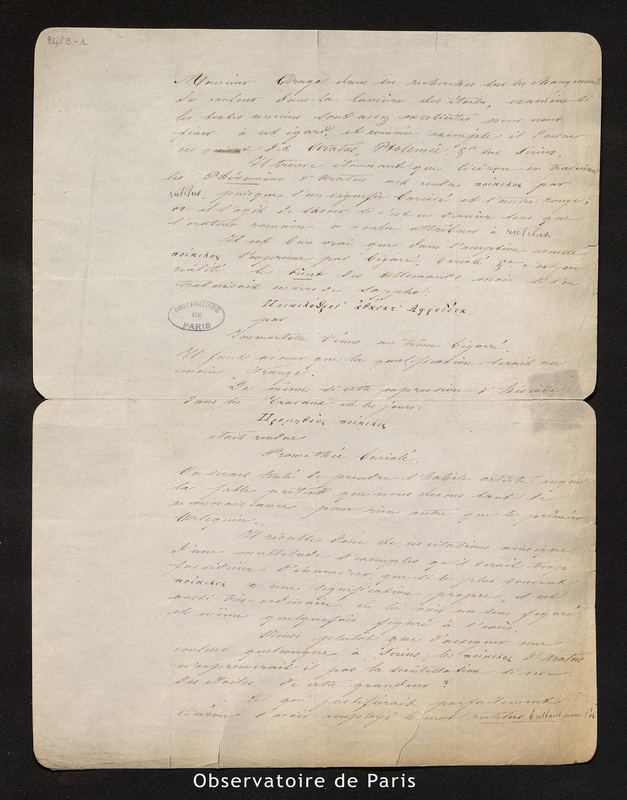 Monsieur Arago dans ses recherches sur les changements
de couleur dans la lumière des étoiles, examine si
les textes anciens sont assez
à cet égard, et comme exemple il donne
ce dit Aratus, Ptolémée &a sur Sirius.
Il trouve étonnant que Cicéron en traduisant
les Phénomènes d'Aratus ait rendu ποικίλος par
rutilus, puisque l'un signifie varié et l'autre rouge;
or il s'agit de savoir si c'est
l'orateur romain a voulu attribuer à rutilus.
Il est bien vrai que dans l'acception usuelle
ποικίλος s'exprime par bigarré, varié &a c'est en
réalité le bunt des allemands mais si l'on
traduisait ce vers de Sappho:
Ποικιλόθρον' ἀθάνατ' Αφροδίτα
par
Immortelle Vénus au trône bigarré.
Il faut avouer que la qualification serait au
moins étrange.
De même si cette expression d'Hésiode
dans les Travaux et les jours:
Προμηθεὺς ποικίλος
était rendue
Prométhée varié.
On serait tenté de prendre l'habile artiste auquel
la fable prétend que nous devons tant de
reconnaissance pour rien autre que le premier
Arlequin.
Il résulte donc de ces citations ainsi que
d'une multitude d'exemples qu'il serait trop
fastidieux d'énumérer que si le plus souvent
ποικίλος a une signification propre, il est
aussi très ordinaire de lui voir un sens figuré
et même quelquefois figuré à l'excès.
Ainsi plutôt que d'assigner une
couleur quelconque à Sirius, le ποικίλος d'Aratus
n'exprimerait-il pas la scintillation si vive
des étoiles de cette grandeur?
Ce qui justifierait parfaitement
Cicéron d'avoir employé le mot rutilus, brillant comme l'or
OBSERVATOIRE
DE
PARIS
Observatoire de Paris